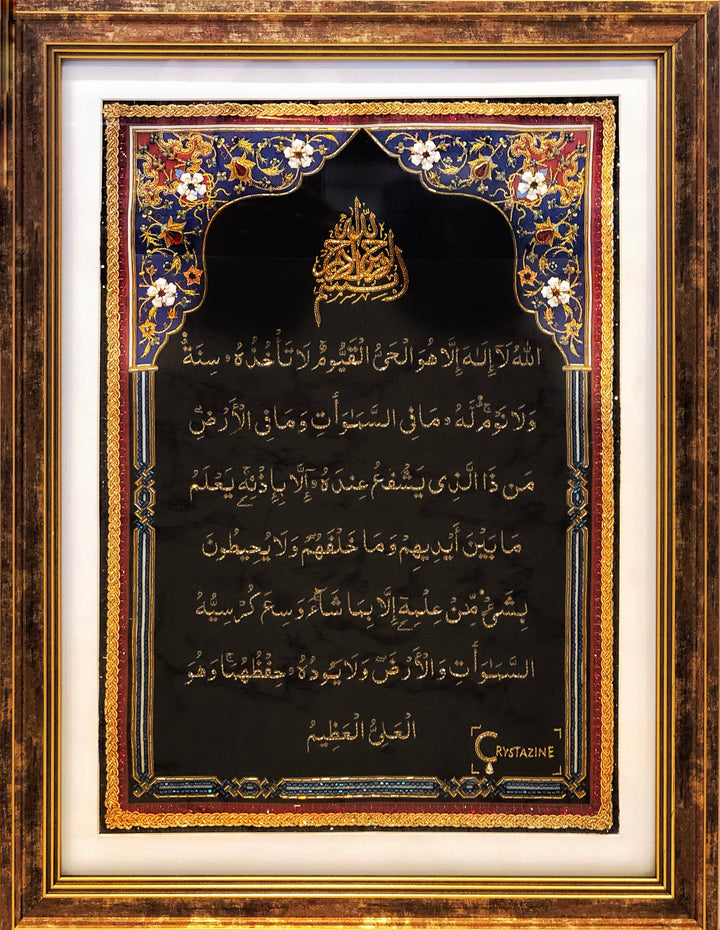 بسم الله الرحمن الرحيم
اللهُ لَآ إِلَٰهَ إِلَّا هُوَ الْحَىُّ الْقَيُّومُ لَا تَأْخُذُهُۥ سِنَةٌ
وَلَا نَوْمٌ لَّهُۥ مَا فِى السَّمَٰوَٰتِ وَمَا فِى الْأَرْضِ
مَن ذَا الَّذِى يَشْفَعُ عِندَهُۥٓ إِلَّا بِإِذْنِهِۦ يَعْلَمُ
مَا بَيْنَ أَيْدِيهِمْ وَمَا خَلْفَهُمْ وَلَا يُحِيطُونَ
بِشَىْءٍ مِّنْ عِلْمِهِۦٓ إِلَّا بِمَا شَآءَ وَسِعَ كُرْسِيُّهُ
السَّمَٰوَٰتِ وَالْأَرْضَ وَلَا يَـُٔودُهُۥ حِفْظُهُمَا وَهُوَ
الْعَلِىُّ الْعَظِيمُ
CRYSTAZINE